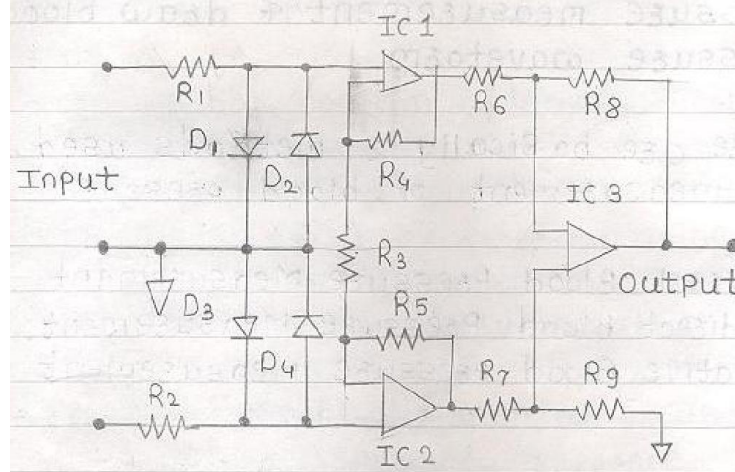 IC 1
R1
R6
R8
D1
D2
R4
Input
IC 3
R3
Output
D3
R5
D4
R2
R7
R9
IC 2